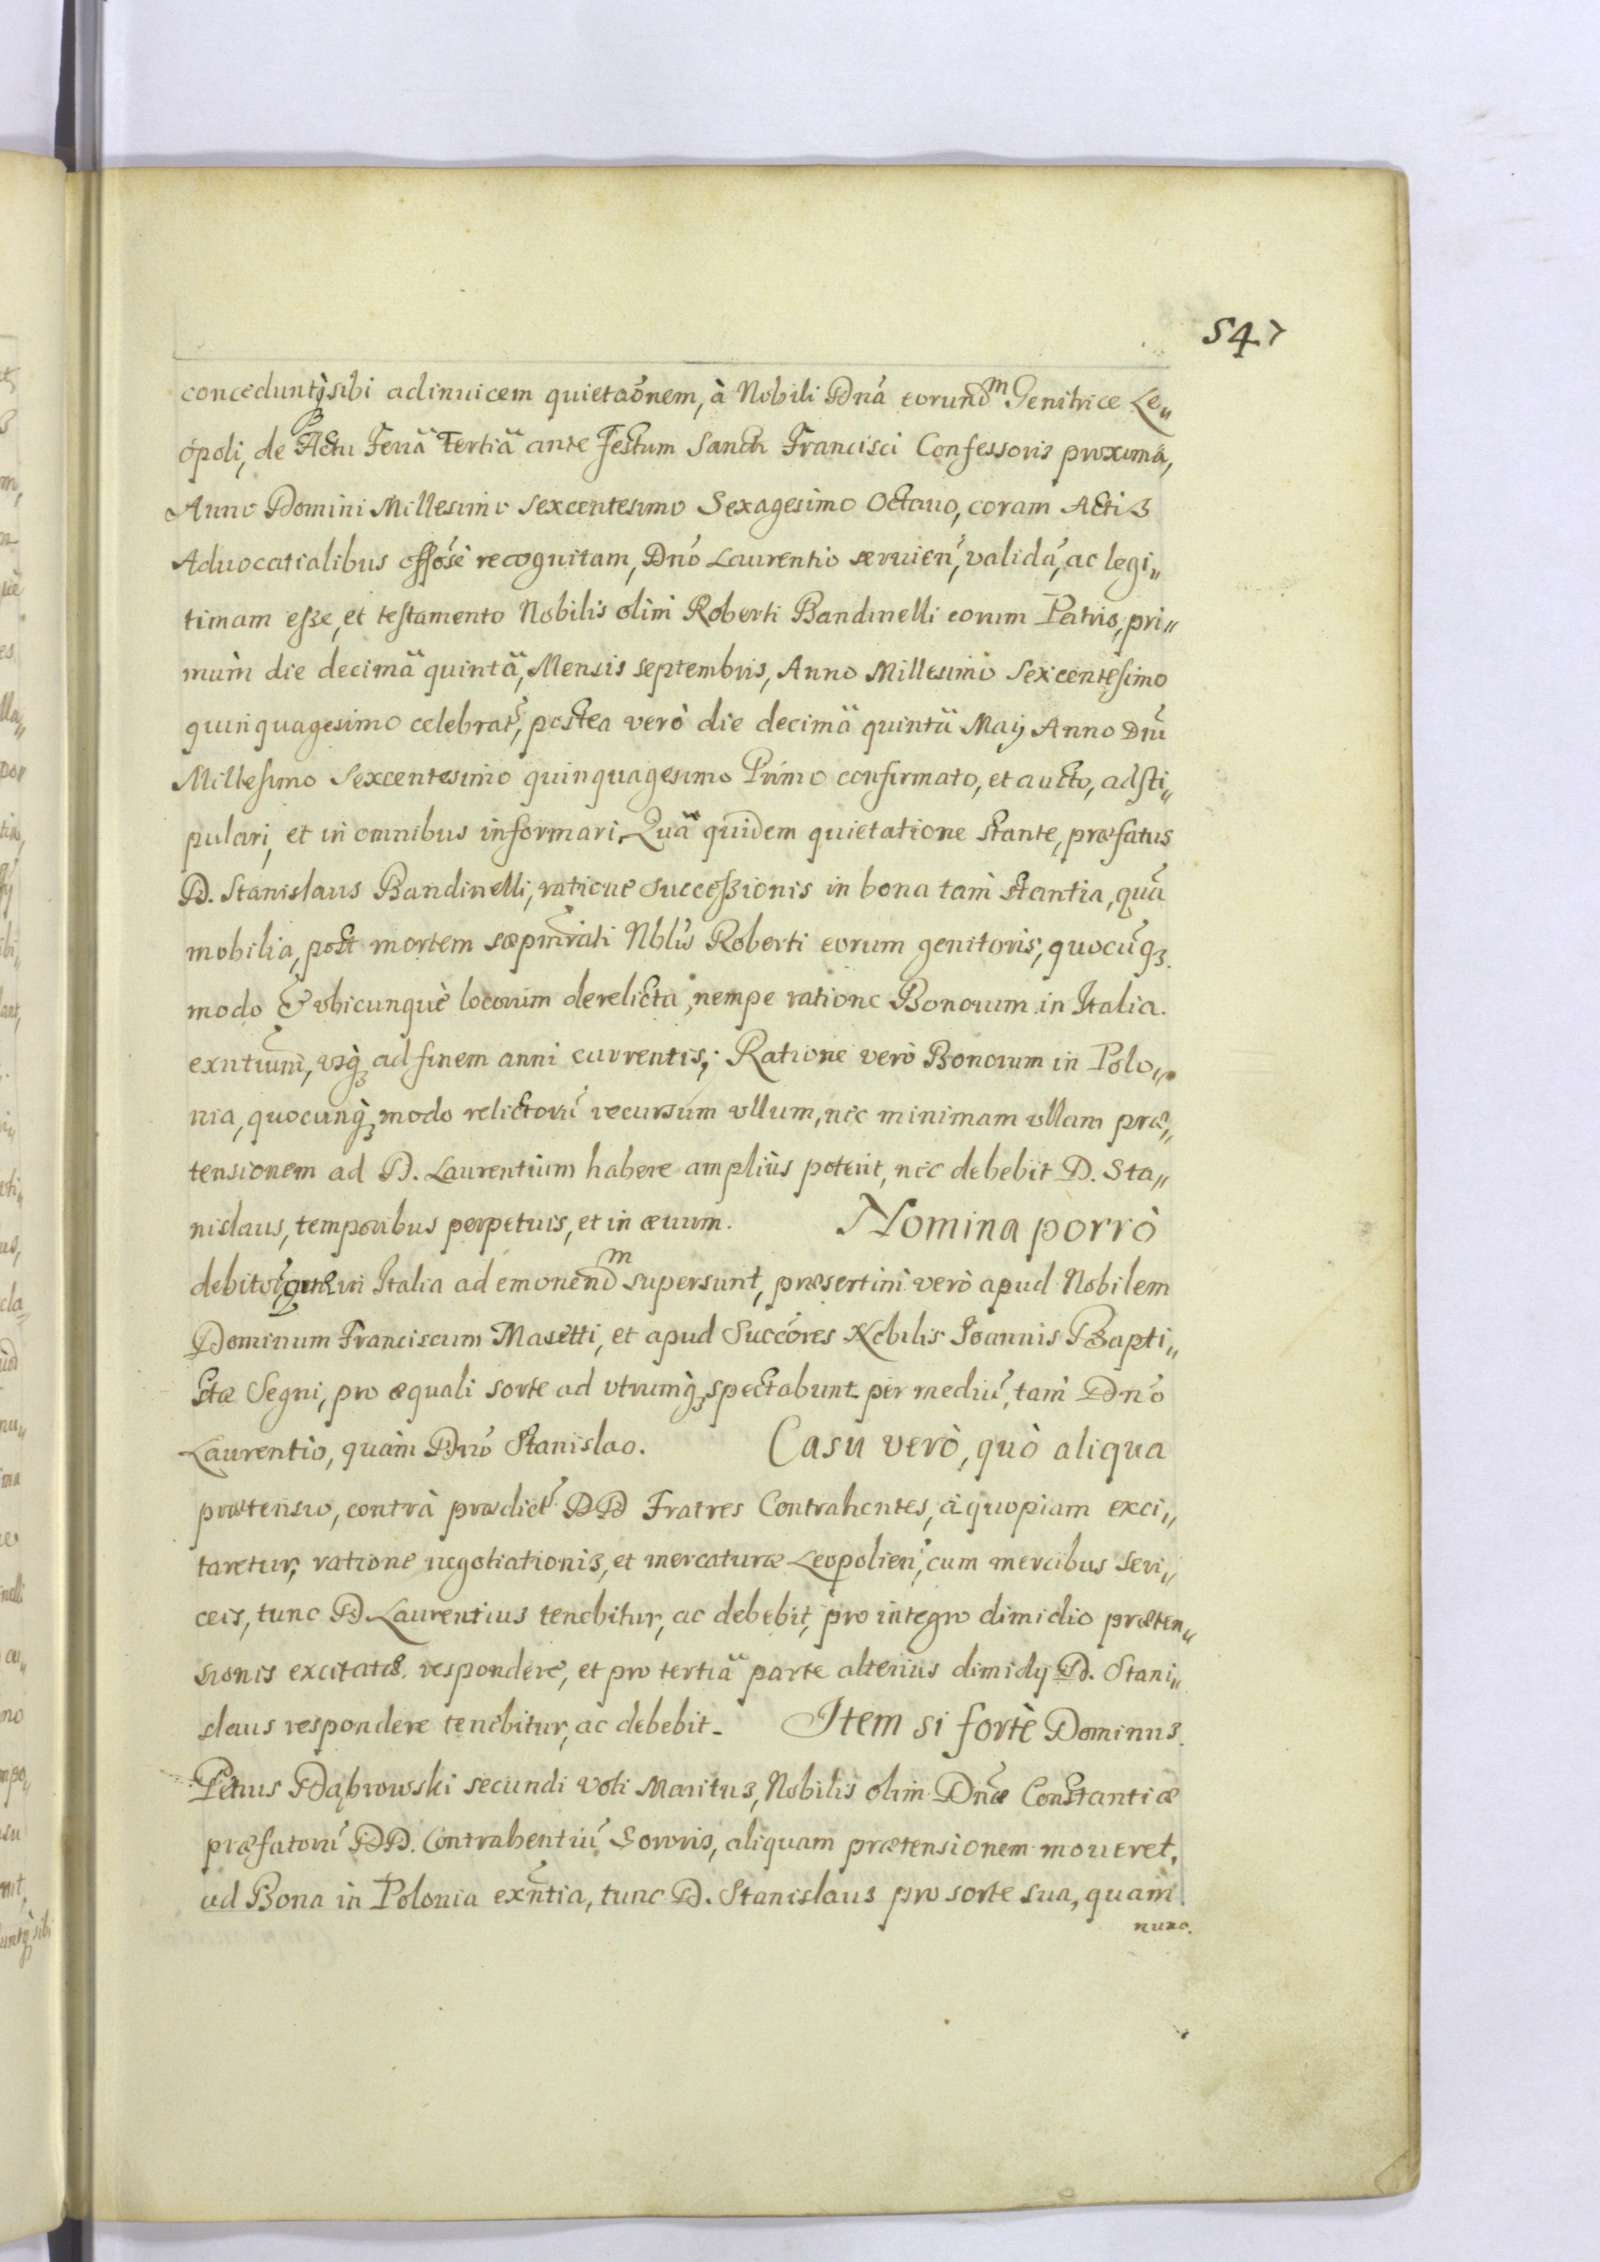 547
conceduntq̀ sibi adinuicem quietaõnem, à Nobili Dnã eorund<sup>m</sup> Genitrice Le„
opoli, de Actu Feriä Tertiä ante Festum Sancti Francisci Confessoris proxima,
Anno Domini Millesimo Sexcentesimo Sexagesimo Octauo, coram Actis
Aduocatialibus offõse recognitam, Dnõ Laurentio seruien̉, validã, ac legi„
timam esse, et testamento Nobilis olim Roberti Bandinelli eorum Patris, pri„
mum̀ die decimä quintä, Mensis septembris, Anno Millesimo Sexcentesimo
quinquagesimo celebrat̉, postea verò die decimä quintä Maij Anno Dnỉ
Millesimo Sexcentesimo quinquagesimo Primo confirmato, et aucto, adsti„
pulari, et in omnibus informari. Quä quidem quietatione stante, præfatus
D. Stanislaus Bandinelli, ratione successionis in bona tam̀ stantia, quã
mobilia, post mortem sæpm̃rati Nblis̃ Roberti eorum genitoris, quocũq3
modo & vbicunquè locorum derelicta, nempe ratione Bonorum in Italia
exñtium, vsq3 ad finem anni currentis; Ratione verò Bonorum in Polo„
nia, quocunq3 modo relictorũ recursum vllum, nec minimam vllam præ„
tensionem ad D. Laurentium habere ampliùs poterit, nec debebit D. Sta„
nislaus, temporibus perpetuis, et in æuum. Nomina porrò
debitor̃, quæ in Italia ad emonend<sup>m</sup> supersunt, præsertim̀ verò apud Nobilem
Dominum Franciscum Masetti, et apud Succõres Nobilis Ioannis Bapti„
stæ Segni, pro æquali sorte ad vtrumq3 spectabunt per mediũ, tam̀ Dnõ
Laurentio, quàm Dnõ Stanislao. Casu verò, quò aliqua
prætensio, contrà prædict̉ DD Fratres Contrahentes, à quopiam exci„
taretur, ratione negotiationis, et mercaturæ Leopolien̉, cum mercibus seri„
ceis, tunc D Laurentius tenebitur, ac debebit, pro integro dimidio præten„
sionis excitatæ respondere, et pro tertiä parte alterius dimidij D. Stani„
slaus respondere tenebitur, ac debebit. Item si fortè Dominus
Petrus Dąbrowski secundi voti Maritus, Nobilis olim Dnæ̃ Constantiæ
præfatorũ DD. Contrahentiũ Sororis, aliquam prætensionem moueret,
ad Bona in Polonia exñtia, tunc D. Stanislaus pro sorte sua, quam
nunc